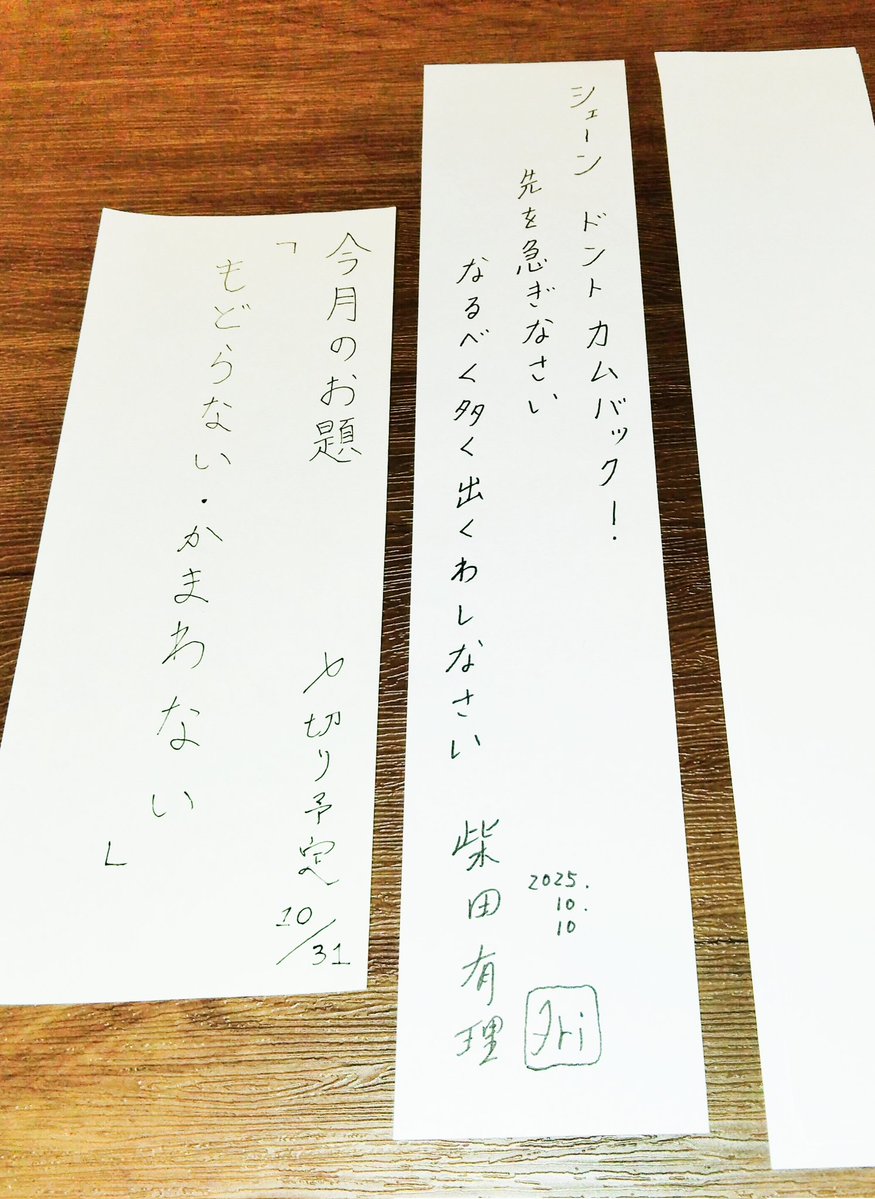 今月のお題
「もどらない・かまわない」
〆切り予定
10/31
シェーン ドント カムバック!
先を急ぎなさい
なるべく多く出くわしなさい
柴田有理
2025.
10.
10
Yri